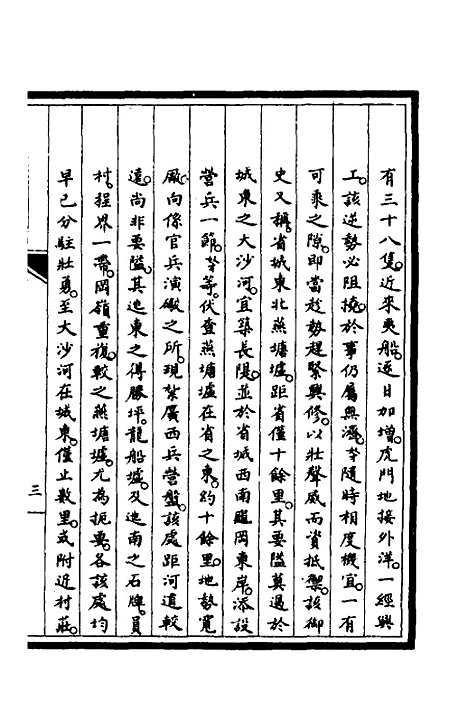 有三十八隻。近來夷船。逐日加增。虎門地接外洋。一經興
工。該逆勢必阻撓。於事仍屬無濟。等隨時相度機宜。一有
可乘之隙。即當趁勢趕緊興修。以壯聲威而資抵禦。該御
史又稱。省城東北燕塘墟。距省僅十餘里。其要隘莫過於
城東之大沙河。宜築長隄。並於省城西南龜岡東岸。添設
營兵一節。等等。伏查燕塘墟在省之東。約十餘里。地勢寬
廠。向係官兵演礮之所。現紮廣西兵營盤。該處距河道較
遠。尚非要隘。其迤東之得勝坪。龍船墟。及迤南之石牌。員
村。程界一帶。岡嶺重複。較之燕塘墟。尤為扼要。各該處均
早已分駐壯勇。至大沙河在城東。僅止數里。或附近村莊。
三